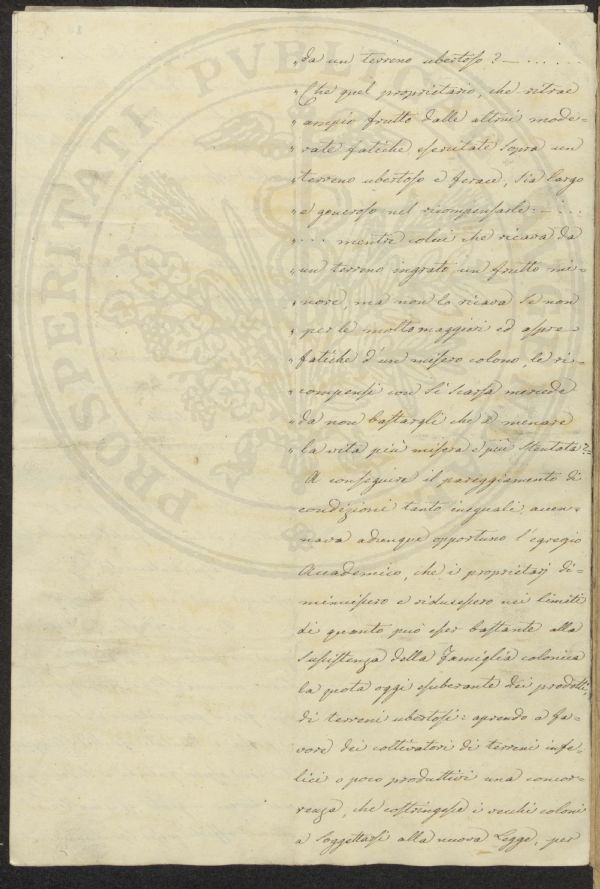 PROSPERITATI PUBLICAE
„ da un terreno ubertoso? — . . . . . .
„ Che quel proprietario, che ritrae
„ ampio frutto dalle altrui mode-
„ rate fatiche esercitate sopra un
„ terreno ubertoso e ferace, sia largo
„ e generoso nel ricompensarle: — . . .
„ . . . mentre colui che ricava da
„ un terreno ingrato un frutto mi-
„ nore, ma non lo ricava se non
„ per le molto maggiori ed aspre
„ fatiche d'un misero colono, le ri-
„ compensi con sì scarsa mercede
„ da non bastargli che a menare
„ la vita più misera e più stentata? =
A conseguire il pareggiamento di
condizioni tanto ineguali, accen-
nava adunque opportuno l'egregio
Accademico, che i proprietarj di-
minuissero e riducessero nei limiti
di quanto può esser bastante alla
sussistenza della Famiglia colonica
la quota oggi esuberante dei prodotti
di terreni ubertosi: aprendo a fa-
vore dei coltivatori di terreni infe-
lici o poco produttivi una concor-
renza, che costringesse i vecchi coloni
a soggettarsi alla nuova Legge, per